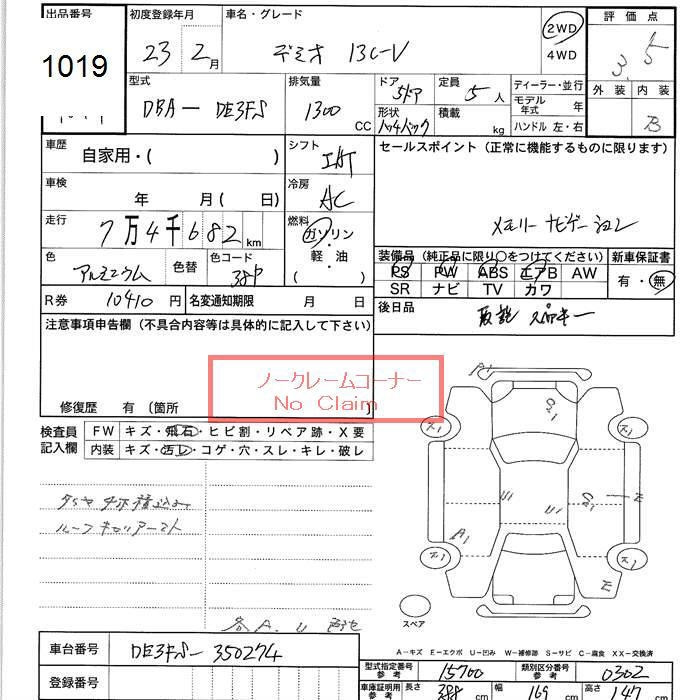 出品番号 初度登録年月 車名・グレード 評価点
1019 23年 2月 デミオ 13C-V 2WD 3.5
4WD
型式 排気量 ドア 定員 ディーラー・並行 外装 内装
DBA-DE3FS 1300 cc 5ドア 5人 モデル年式 年 B
形状 ハッチバック 積載 kg ハンドル 左・右
車歴 自家用・( ) シフト セールスポイント (正常に機能するものに限ります)
車検 年 月 ( 日) 冷房 AC
メモリーナビゲーション
走行 7万4千682km 燃料 ガソリン・軽油 ( )
装備品 (純正品に限り○をつけてください) 新車保証書
色 アルミニウム 色替 色コード 38P PS PW ABS エアB AW 有・無
SR ナビ TV カワ
R券 10410円 名変通知期限 月 日 後日品 取説 スペアキー
注意事項申告欄 (不具合内容等は具体的に記入して下さい)
ノークレームコーナー
No Claim
修復歴 有 〔箇所 〕
検査員記入欄 FW キズ・飛石・ヒビ割・リペア跡・X要
内装 キズ・汚レ・コゲ・穴・スレ・キレ・破レ
A1
E
スペア
各A.U
A-キズ E-エクボ U-凹み W-補修跡 S-サビ C-腐食 XX-交換済
車台番号 DE3FS-350274
型式指定番号 参考 15700 類別区分番号 参考 0302
登録番号
車庫証明用 参考 長さ 388 cm 幅 169 cm 高さ 147 cm